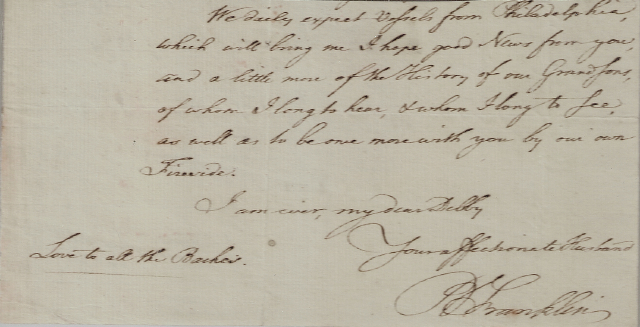 We daily expect Vessels from Philadelphia,
which will bring me I hope good News from you,
and a little more of the History of our Grandsons,
of whom I long to hear, & whom I long to see,
as well as to be once more with you by our own
Fireside.
I am ever, my dear Debby
Your affectionate Husband
Love to all the Baches.
B Franklin